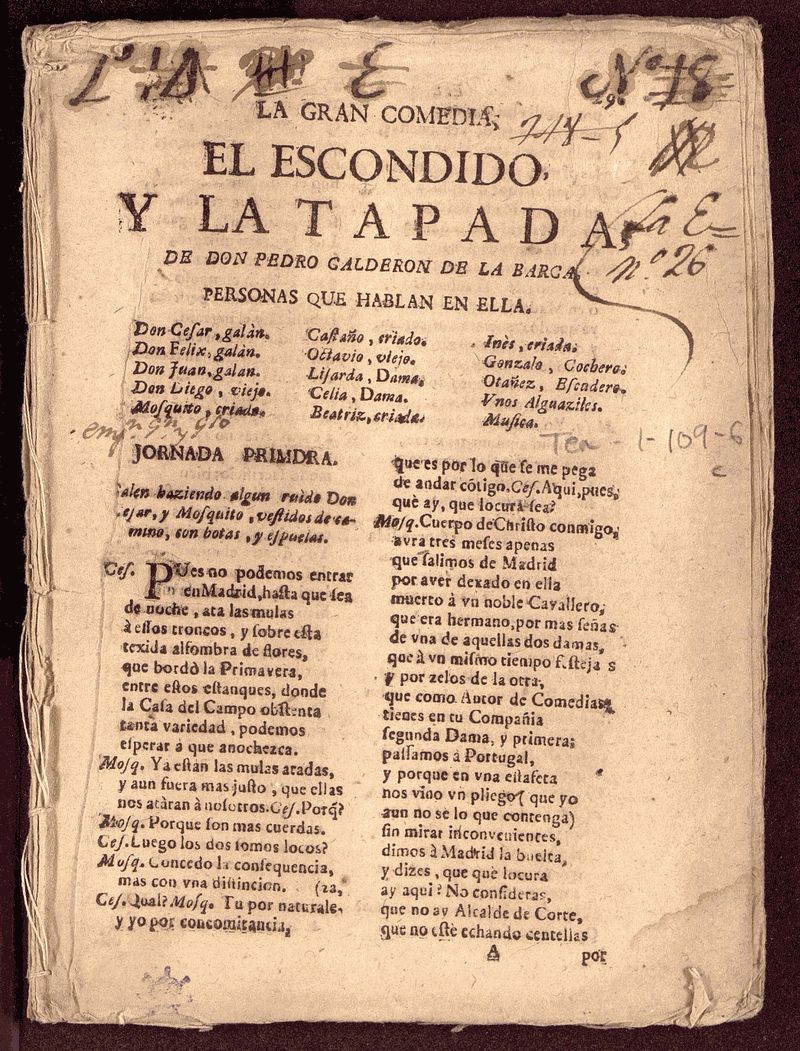 Lº 10
E
Nº 18
9.
LA GRAN COMEDIA,
EL ESCONDIDO,
Y LA TAPADA,
la E
nº 26
DE DON PEDRO CALDERON DE LA BARCA.
PERSONAS QUE HABLAN EN ELLA.
Don Ceſar, galàn.
Don Felix, galàn.
Don Juan, galan.
Don Diego, viejo.
Moſquito, criado.
Caſtaño, criado.
Octavio, viejo.
Liſarda, Dama.
Celia, Dama.
Beatriz, criada.
Inès, criada.
Gonzalo, Cochero.
Otañez, Eſcudero.
Vnos Alguaziles.
Muſica.
Tea - 1-109-6
c
JORNADA PRIMDRA.
alen haziendo algun ruido Don
eſar, y Moſquito, veſtidos de ca-
mino, con botas, y eſpuelas.
Ceſ. PUes no podemos entrar
en Madrid, haſta que ſea
de noche, ata las mulas
à eſſos troncos, y ſobre eſta
texida alfombra de flores,
que bordò la Primavera,
entre eſtos eſtanques, donde
la Caſa del Campo obſtenta
tanta variedad, podemos
eſperar à que anochezca.
Moſq. Ya eſtàn las mulas atadas,
y aun fuera mas juſto, que ellas
nos atàran à noſotros. Ceſ. Porq̃?
Moſq. Porque ſon mas cuerdas.
Ceſ. Luego los dos ſomos locos?
Moſq. Concedo la conſequencia,
mas con vna diſtincion. (za,
Ceſ. Qual? Moſq. Tu por naturale-
y yo por concomitancia,
que es por lo que ſe me pega
de andar cõtigo. Ceſ. Aqui, pues,
què ay, que locura ſea?
Moſq. Cuerpo de Chriſto conmigo,
avrà tres meſes apenas
que ſalimos de Madrid
por aver dexado en ella
muerto à vn noble Cavallero,
que era hermano, por mas ſeñas
de vna de aquellas dos damas,
que à vn miſmo tiempo feſteja s
y por zelos de la otra,
que como Autor de Comedias,
tienes en tu Compañia
ſegunda Dama, y primera;
paſſamos à Portugal,
y porque en vna eſtafeta
nos vino vn pliego( que yo
aun no sè lo que contenga)
ſin mirar inconvenientes,
dimos à Madrid la buelta,
y dizes, que què locura
ay aqui? No conſideras,
que no ay Alcalde de Corte,
que no eſtè echando centellas
A
por